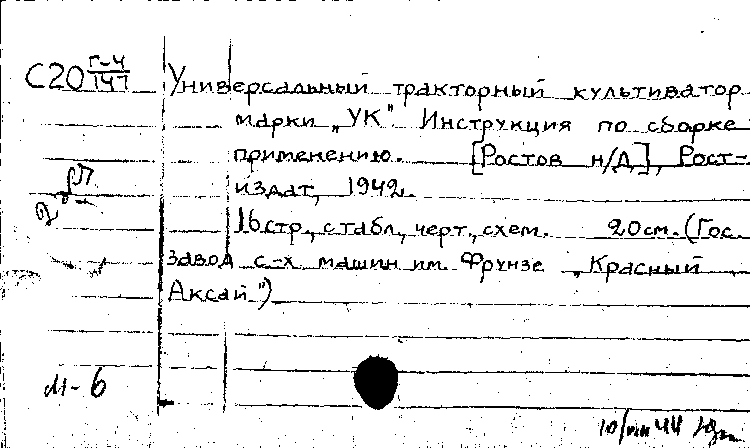 С20 Г-4/147
Универсальный тракторный культиватор
марки „УК". Инструкция по сборке
применению. [Ростов н/Д], Рост-
издат, 1942.
16стр., с табл., черт., схем. 20см. (Гос.
завод с-х машин им. Фрунзе „Красный
Аксай")
М-6
10/VIII 44